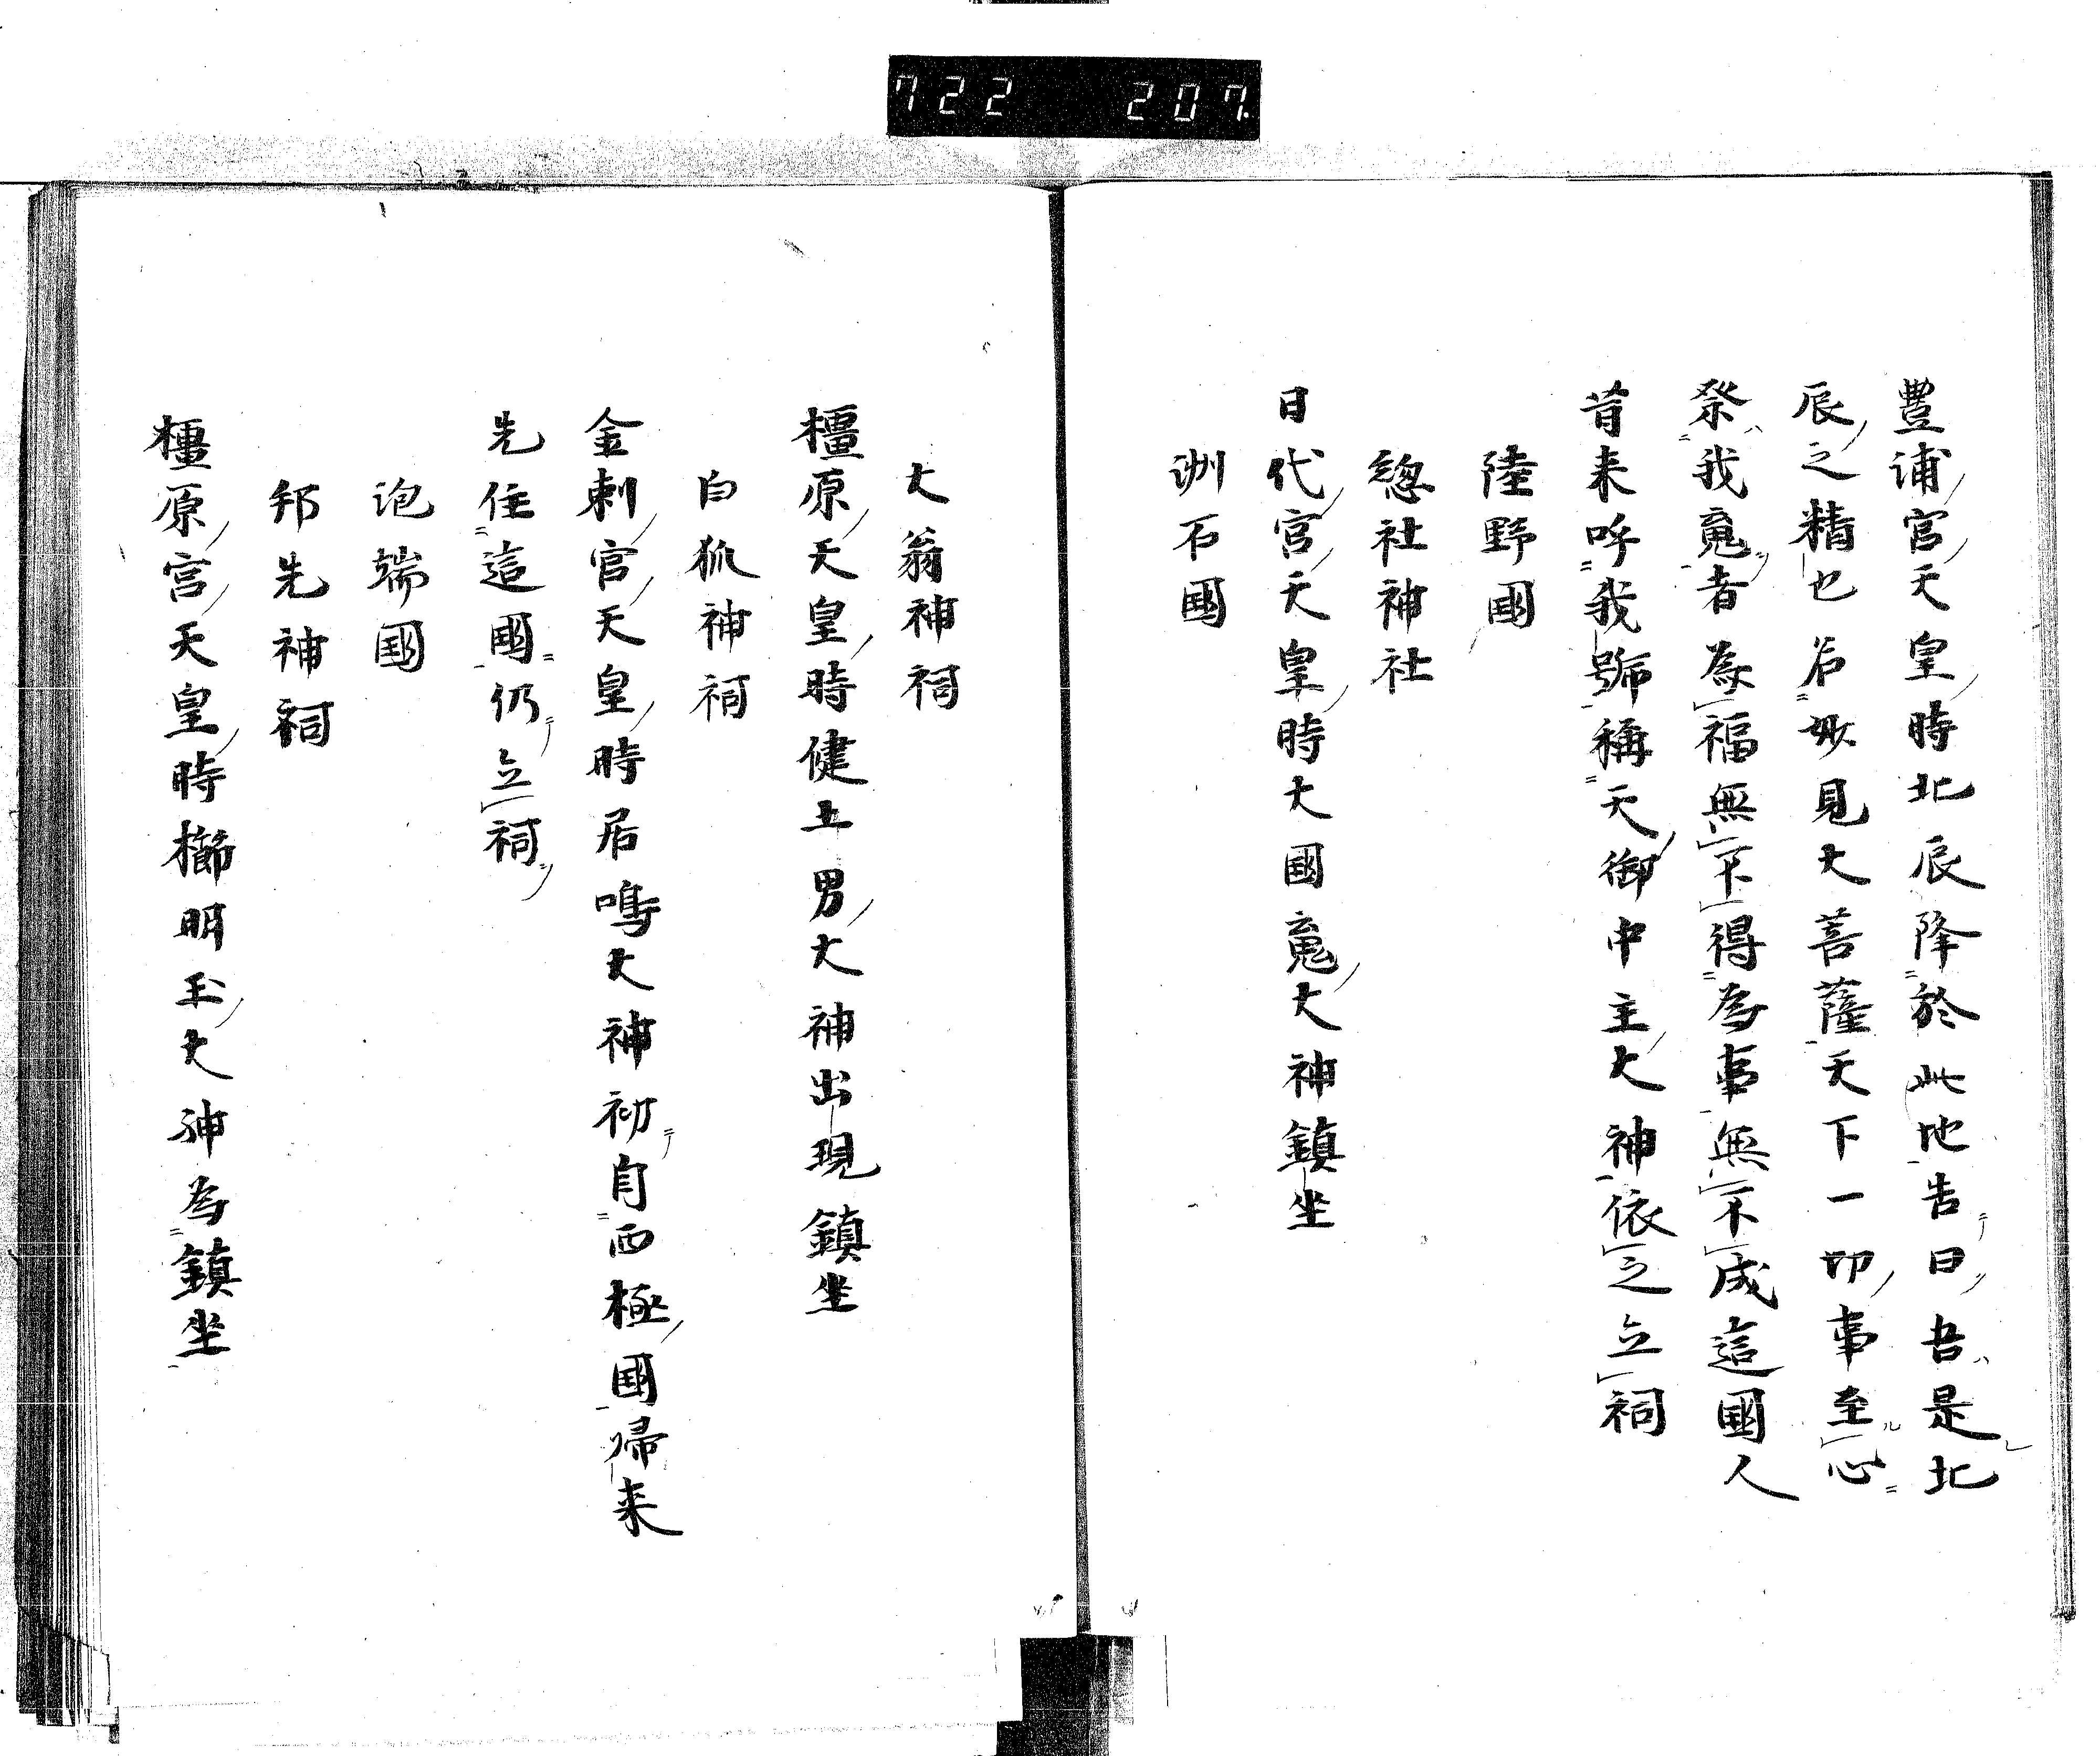 722 207
豊浦宮天皇時北辰降於此地告曰吾是北
辰之精也名妙見大菩薩天下一切事至心
祭我竟者為福無不得為事無不成這國人
昔来呼我號稱天御中主大神依之立祠
陸野國
總社神社
日代宮天皇時大國竟大神鎮坐
洲石國
大翁神祠
橿原天皇時健土男大神出現鎮坐
白狐神祠
金刺宮天皇時居鳴大神初自西極國帰来
先住這國仍立祠
詑端國
邦先神祠
橿原宮天皇時櫛明玉大神為鎮坐